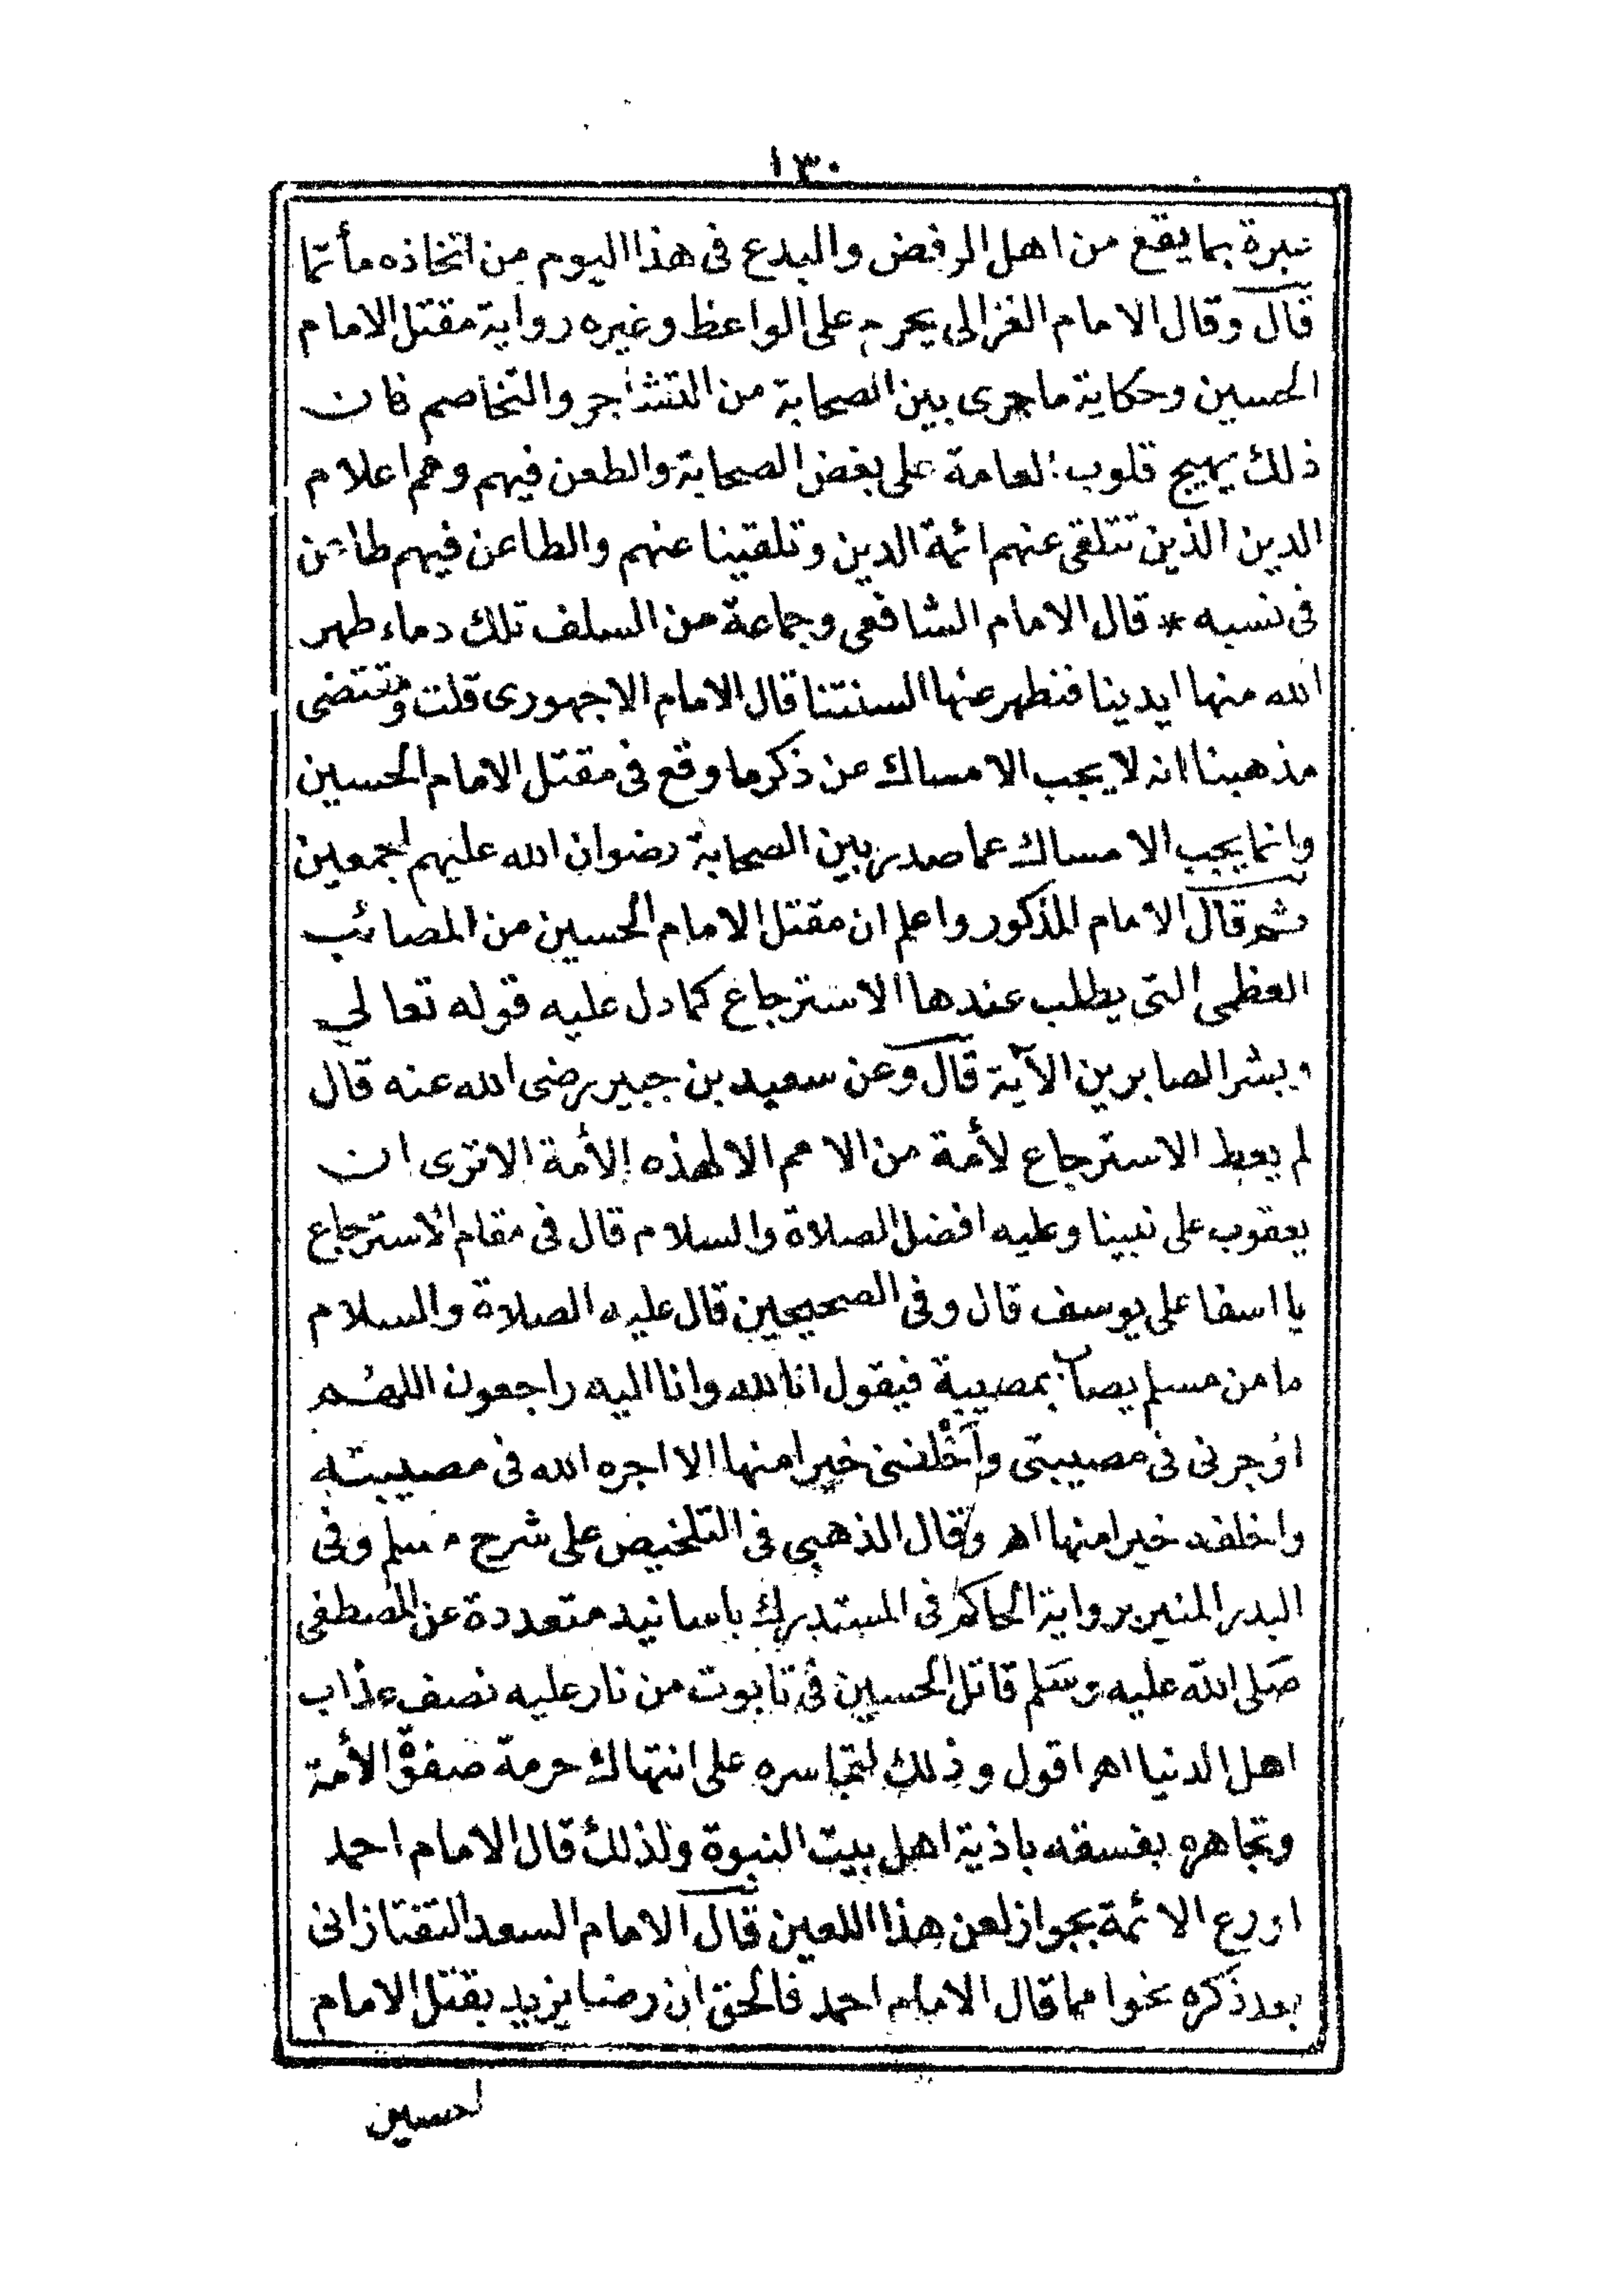 ١٣٠
عبرة بما يقع من اهل الرفض والبدع فى هذا اليوم من اتخاذه مأتما
قال وقال الامام الغزالى يحرم على الواعظ وغيره رواية مقتل الامام
الحسين وحكاية ما جرى بين الصحابة من التشاجر والتخاصم فان
ذلك يهيج قلوب العامة على بغض الصحابة والطعن فيهم وهم اعلام
الدين الذين تتلقى عنهم ائمة الدين وتلقينا عنهم والطاعن فيهم طاعن
فى نسبه * قال الامام الشافعى وجماعة من السلف تلك دماء طهر
الله منها ايدينا فنطهر عنها السنتنا قال الامام الاجهورى قلت ومقتضى
مذهبنا انه لا يجب الامساك عن ذكر ما وقع فى مقتل الامام الحسين
وانما يجب الامساك عما صدر بين الصحابة رضوان الله عليهم اجمعين
ثم قال الامام المذكور واعلم ان مقتل الامام الحسين من المصائب
العظمى التى يطلب عندها الاسترجاع كما دل عليه قوله تعالى
وبشر الصابرين الآية قال وعن سعيد بن جبير رضى الله عنه قال
لم يعط الاسترجاع لأمة من الامم الا لهذه الأمة الا ترى ان
يعقوب على نبينا وعليه افضل الصلاة والسلام قال فى مقام الاسترجاع
يا اسفا على يوسف قال وفى الصحيحين قال عليه الصلاة والسلام
ما من مسلم يصاب بمصيبة فيقول انا لله وانا اليه راجعون اللهم
اؤجرنى فى مصيبتى وأخلفنى خيرا منها الا اجره الله فى مصيبته
واخلفه خيرا منها اه وقال الذهبى فى التلخيص على شرح مسلم وفى
البدر المنير برواية الحاكم فى المستدرك باسانيد متعددة عن المصطفى
صلى الله عليه وسلم قاتل الحسين فى تابوت من نار عليه نصف عذاب
اهل الدنيا اه اقول وذلك لتجاسره على انتهاك حرمة صفوة الأمة
وتجاهره بفسقه باذية اهل بيت النبوة ولذلك قال الامام احمد
اورع الائمة بجواز لعن هذا اللعين قال الامام السعد التفتازانى
بعد ذكره نحوا مما قال الامام احمد فالحق ان رضا يزيد بقتل الامام
لحسين